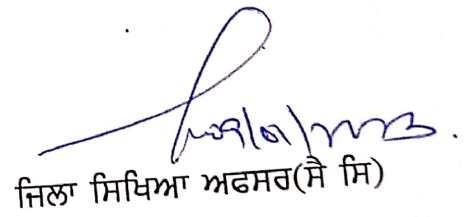 ਜਿਲਾ ਸਿਖਿਆ ਅਫਸਰ(ਸੈ ਸਿ)